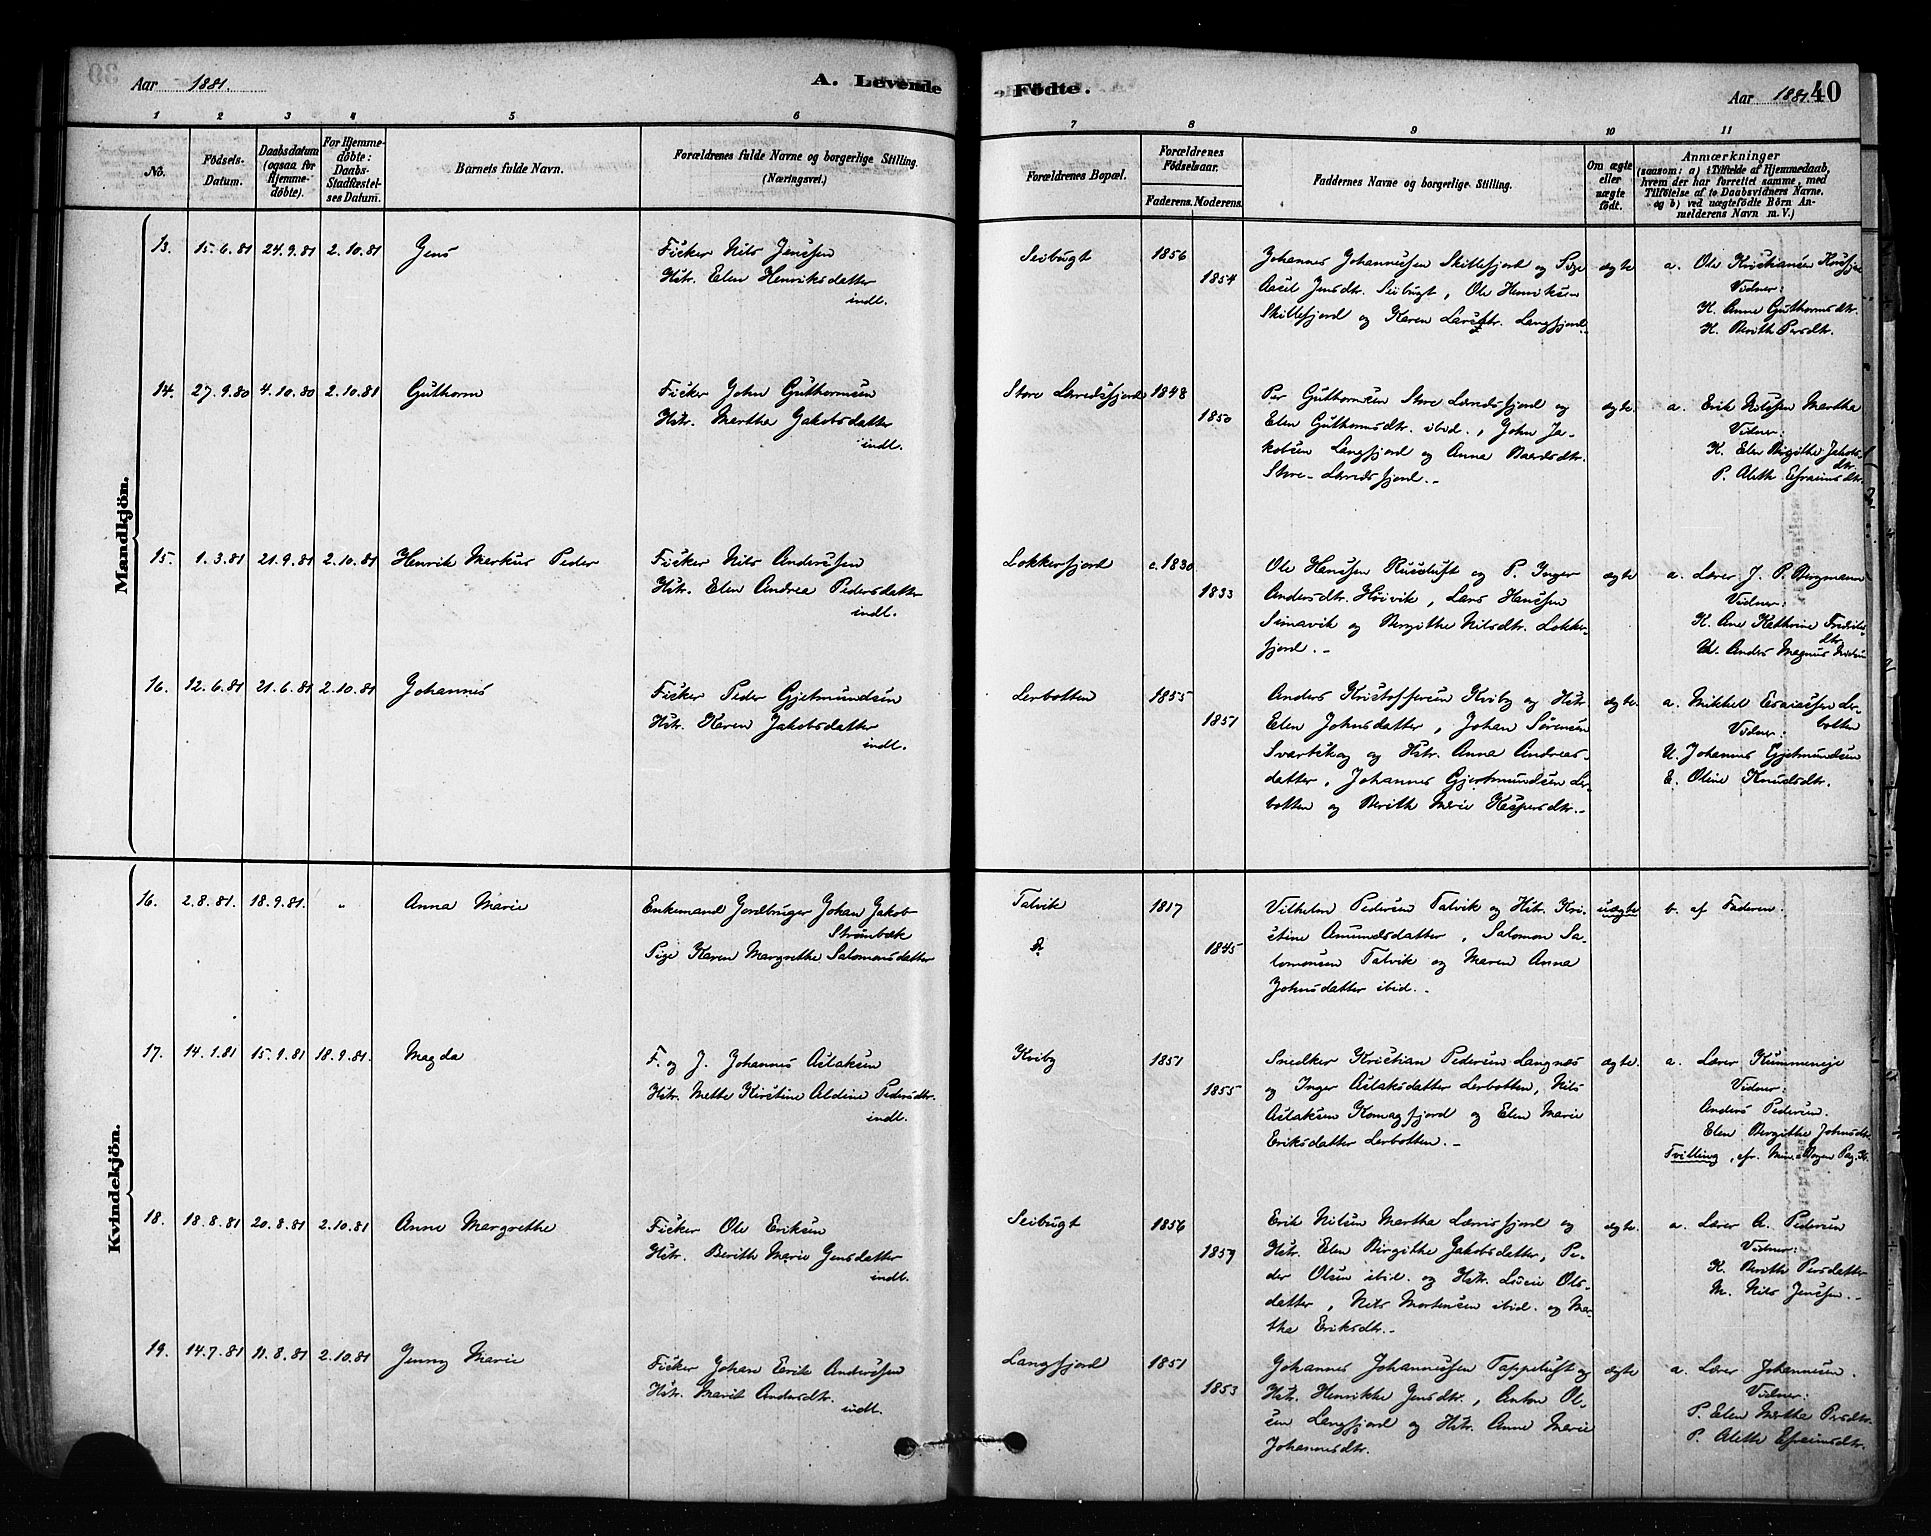 Aar 1881.
A. Levende Födte.
Aar 1881. 40
1 2 3 4 5 6 7 8 9 10 11
No.
Födsels-
Datum.
Daabsdatum
(ogsaa for
Hjemme-
döbte).
For Hjemme-
döbte:
Daabs-
Stadfæstel-
ses Datum.
Barnets fulde Navn.
Forældrenes fulde Navne og borgerlige Stilling.
(Næringsvei.)
Forældrenes Bopæl.
Forældrenes
Födselsaar.
Faderens. Moderens.
Faddernes Navne og borgerlige Stilling.
Om ægte
eller
uægte
født.
Anmærkninger
(saasom: a) i Tilfælde af Hjemmedaab,
hvem der har forrettet samme, med
Tilföielse af to Daabsvidners Navne,
og b) ved uægtefödte Börn An-
melderens Navn m. V.)
Mandkjön.
13. 15.6.81 24.9.81 2.10.81 Jens
Fisker Nils Jenssen
Hstr. Elen Henriksdatter
indl.
Seibugt 1856
1854
Johannes Johannessen Skillefjord og Pige
Aasil Jensdtr. Seibugt, Ole Henriksen
Skillefjord og Karen Larsdtr. Langfjord.
ægte
a. Ole Kristiansen
Vidner:
K. Anne Guthormsdtr.
K. Berith Persdtr.
14. 27.9.80 4.10.80 2.10.81 Guthorm
Fisker John Guthormsen
Hstr. Martha Jakobsdatter
indl.
Store Lerredsfjord 1848
1850
Per Guthormsen Store Lerredsfjord og
Elen Guthormsdtr. ibid., John Ja-
kobsen Langfjord og Anna Baardsdtr.
Store-Lerredsfjord.-
ægte.
a. Erik Nilssen Martha
Vidner:
K. Elen Birgithe Jakobs-
dtr.
P. Aleth Efraimsdtr.
15. 1.3.81 21.9.81 2.10.81 Henrik Markus Peder
Fisker Nils Anderssen
Hstr. Elen Andrea Pedersdatter
indl.
Lokkerfjord c.1830
1833
Ole Hanssen Russeluft og P. Inger
Andersdtr. Höivik, Lars Hanssen
Simavik og Bergithe Nilsdtr. Lokker-
fjord.-
ægte
a. Lærer J. P. Bergmann
Vidner:
K. Ane Kathrine Fredriks-
dtr.
U. Anders Magnus
16. 12.6.81 21.6.81 2.10.81 Johannes
Fisker Peder Gjetmundsen
Hstr. Karen Jakobsdatter
indl.
Lerbotten 1855
1851
Anders Kristoffersen Kviby og Hstr.
Elen Johnsdatter, Johan Sørensen
Svartskog og Hstr. Anna Andreas-
datter, Johannes Gjertmundsen Ler-
botten og Berith Marie Kaspersdtr.-
ægte.
a. Mikkel Esaiassen Ler-
botten
Vidner:
U. Johannes Gjetmundsen
E. Oline Knudsdtr.
Kvindekjön.
16. 2.8.81. 18.9.81. " Anna Marie
Enkemand Jordbruger Johan Jakob
Strömbæk
Pige Karen Margrethe Salomonsdatter
Talvik 1817
do. 1845
Vilhelm Pedersen Talvik og Hstr. Kri-
stine Amundsdatter, Salomon Sa-
lomonsen Talvik og Maren Anna
Johnsdatter ibid.-
uægte
b. af Faderen.
17. 14.1.81 15.1.81 18.9.81. Magda
F. og J. Johannes Aslaksen
Hstr. Mette Kirstine Aldine Pedersdtr.
indl.
Kviby 1851
1855
Snedker Kristian Pedersen Langnæs
og Inger Aslaksdatter Lerbotten, Nils
Aslaksen Komagfjord og Elen Marie
Eriksdatter Lerbotten.-
ægte.
a. Lærer Kummeneje
Vidner:
Anders Pedersen.
Elen Bergithe Johnsdtr.
Tvilling,
18. 18.8.81 20.8.81 2.10.81 Anne Margrethe
Fisker Ole Eriksen
Hstr. Berith Marie Jensdatter
indl.
Seibugt 1856
1859
Erik Nilsen Martha Lerrisfjord og
Hstr. Elen Birgithe Jakobsdatter, Pe-
der Olsen ibid. og Hstr. Lisie Ols-
datter, Nils Mortensen ibid. og Mar-
the Eriksdtr.-
ægte
a. Lærer A. Pedersen
Vidner:
K. Berith Persdatter
M. Nils Jenssen.-
19. 14.7.81 11.8.81 2.10.81 Jenny Marie
Fisker Johan Erik Anderssen
Hstr. Marit Andersdtr.
indl.
Langfjord 1851
1853
Johannes Johannessen Tappeluft og
Hstr. Henrikke Jensdtr., Anton Ol-
sen Langfjord og Hstr. Anne Marie
Johannesdtr.
ægte
a. Lærer Johannesen.
Vidner:
P. Elen Marthe Persdtr.
P. Aleth Efraimsdtr.